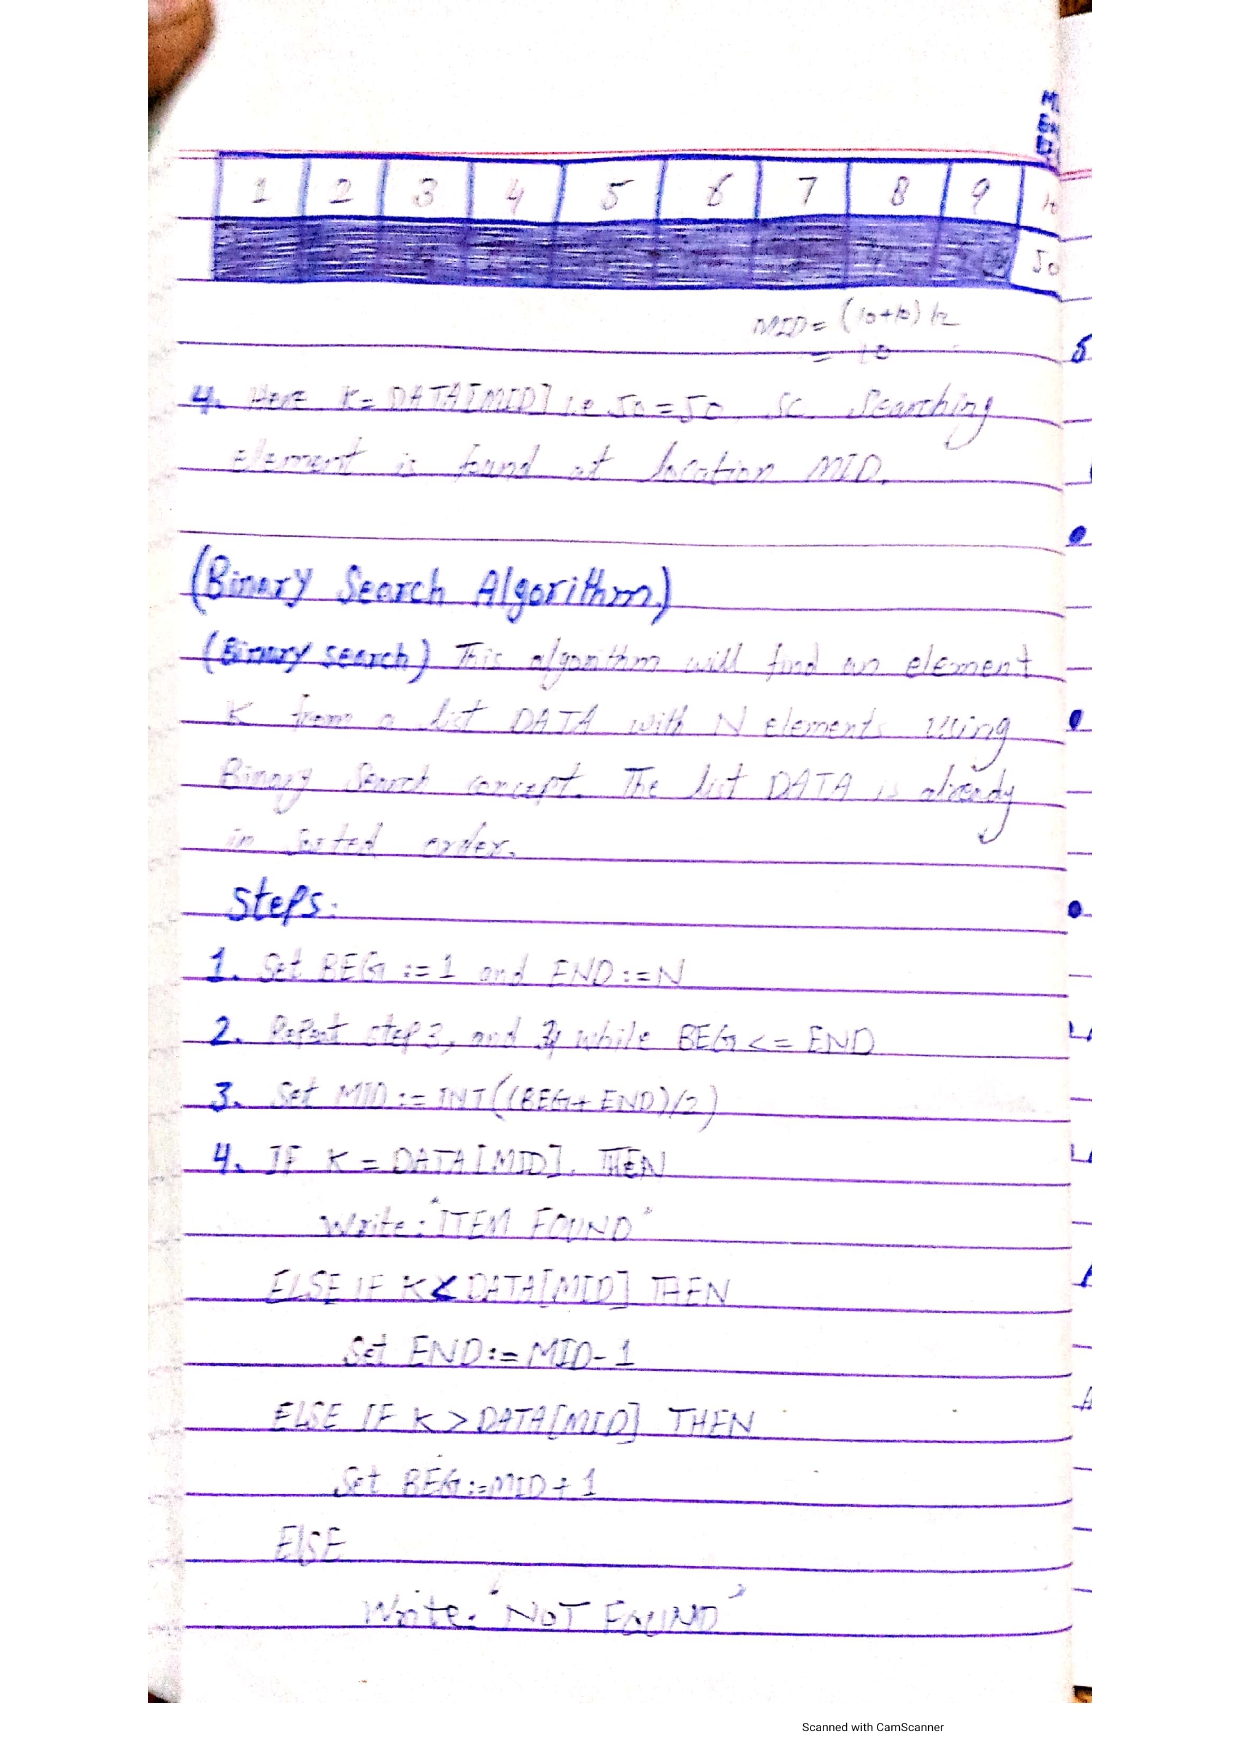 M
EN
BE
1 2 3 4 5 6 7 8 9 10
50
MID = (10+10)/2
= 10
4. Here K = DATA[MID] i.e 50 = 50 so Searching
element is found at location MID.
(Binary Search Algorithm.)
(Binary search) This algorithm will find an element
K from a list DATA with N elements using
Binary Search concept. The list DATA is already
in sorted order.
Steps:
1. Set BEG := 1 and END := N
2. Repeat step 3, and 4 while BEG <= END
3. Set MID := INT((BEG + END)/2)
4. IF K = DATA[MID]. THEN
Write: "ITEM FOUND"
ELSE IF K < DATA[MID] THEN
Set END := MID - 1
ELSE IF K > DATA[MID] THEN
Set BEG := MID + 1
ElSE
Write: "NOT FOUND"
Scanned with CamScanner